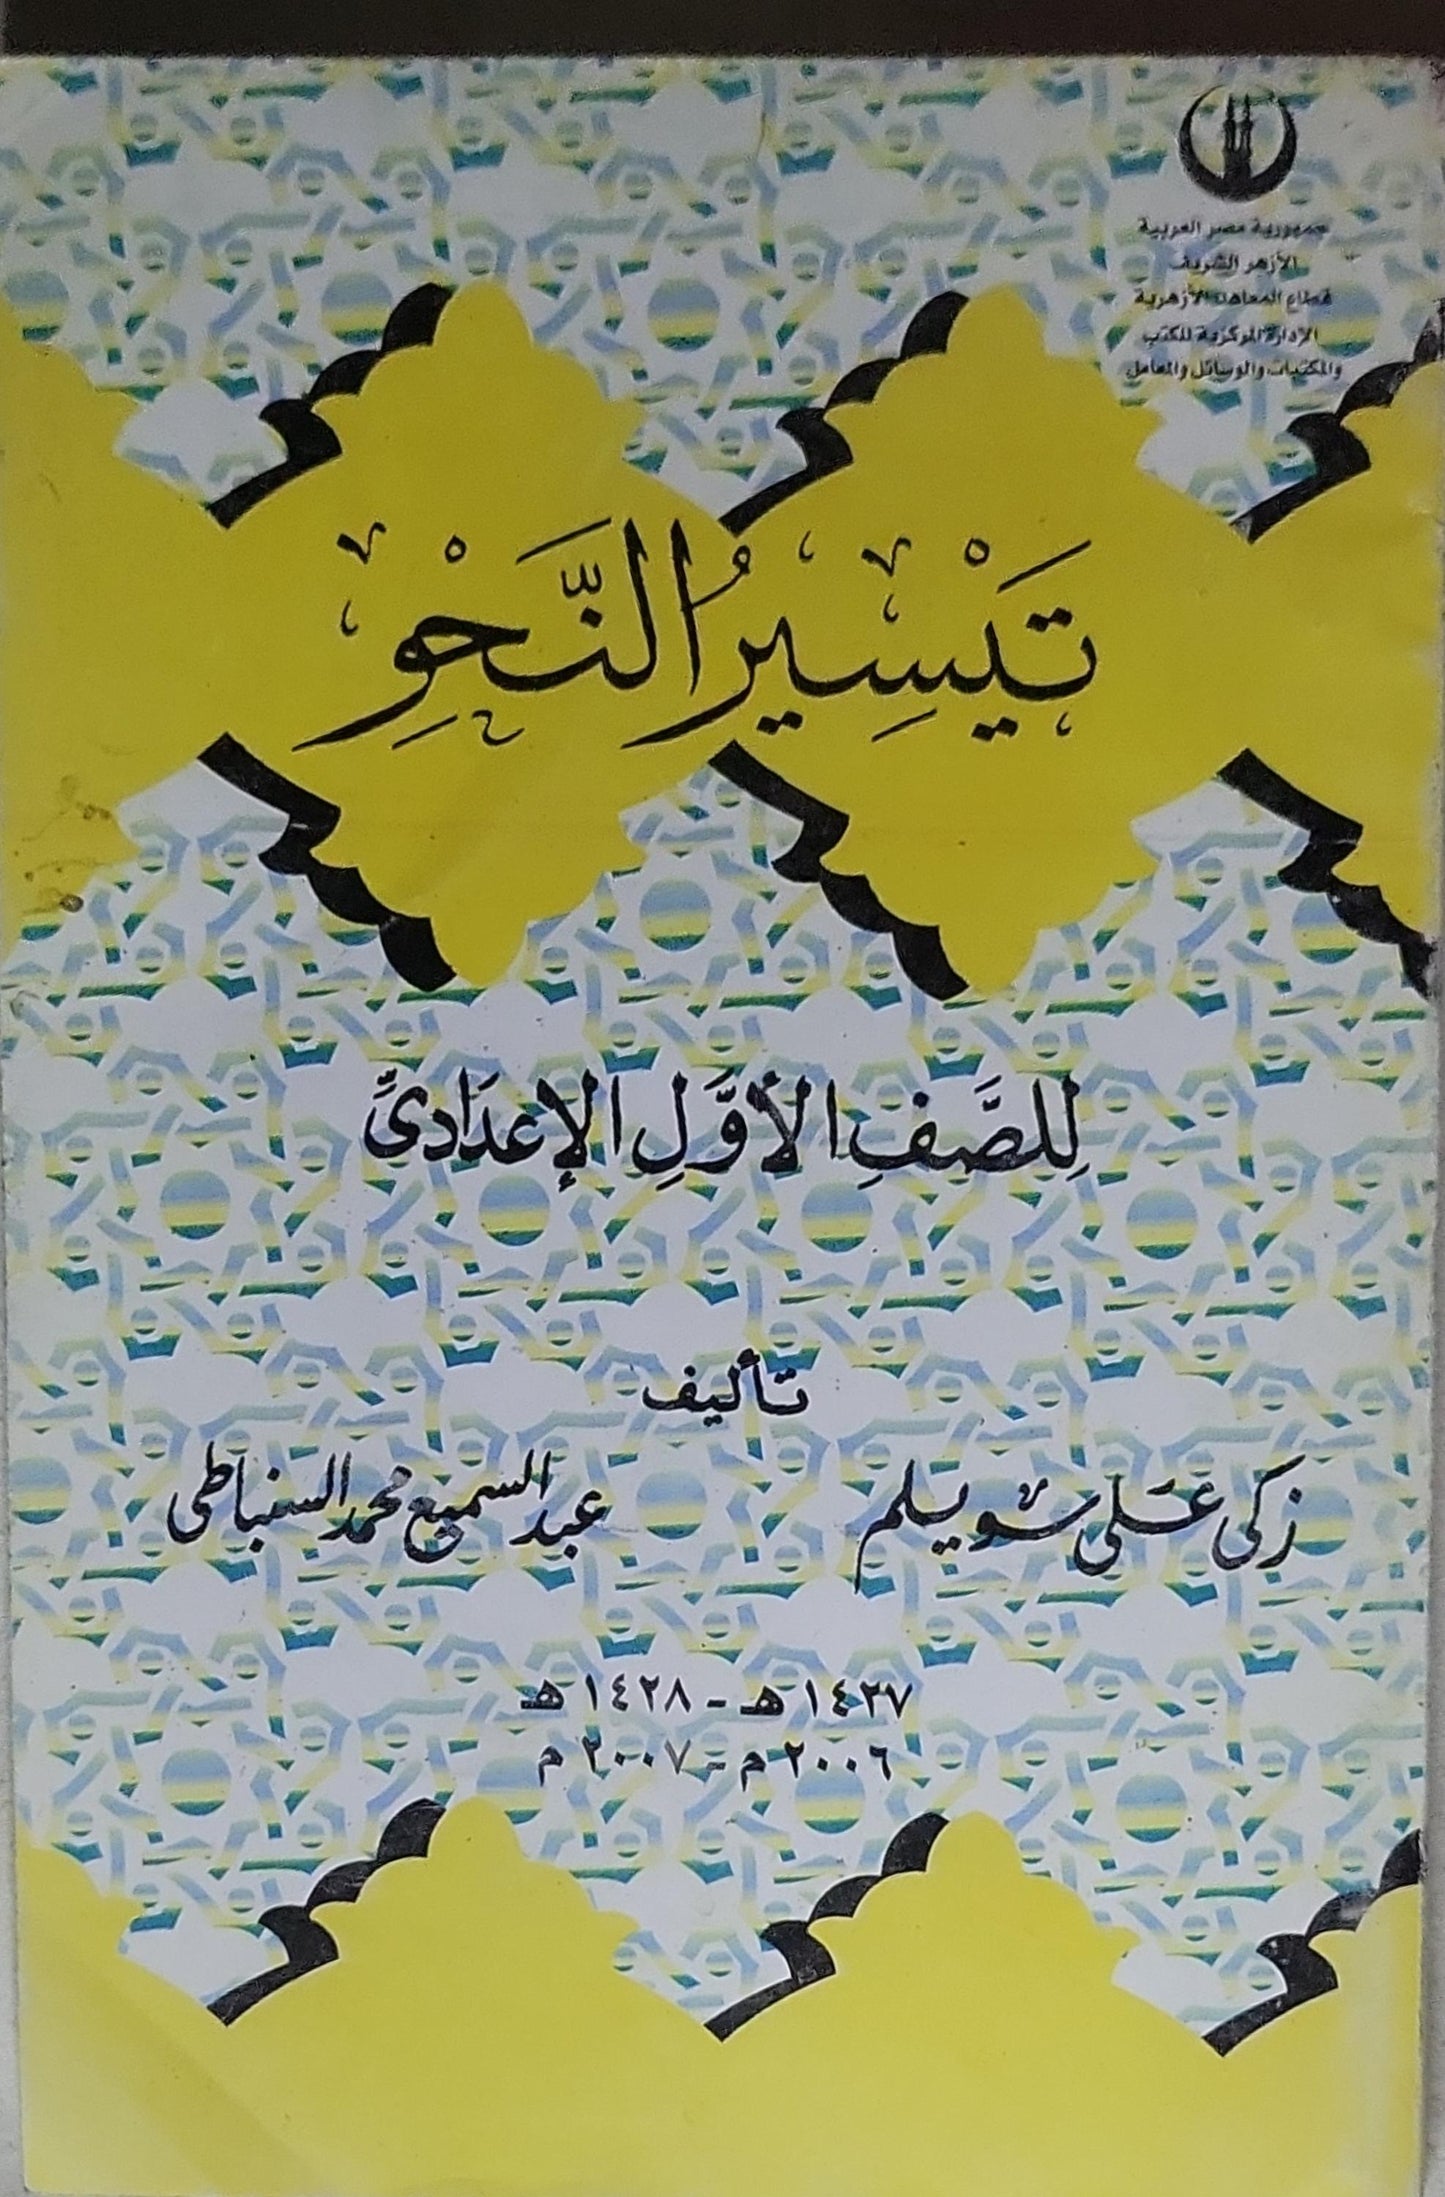 جمهورية مصر العربية
الأزهر الشريف
قطاع المعاهد الأزهرية
الإدارة المركزية للكتب
والمكتبات والوسائل والمعامل
تَيْسِيرُ النَّحْوِ
لِلصَّفِ الأَوَّلِ الإعدَادىِّ
تأليف
زكى على سويلم عبد السميع محمد السنباطى
١٤٢٧ هـ - ١٤٢٨ هـ
٢٠٠٦ م - ٢٠٠٧ م